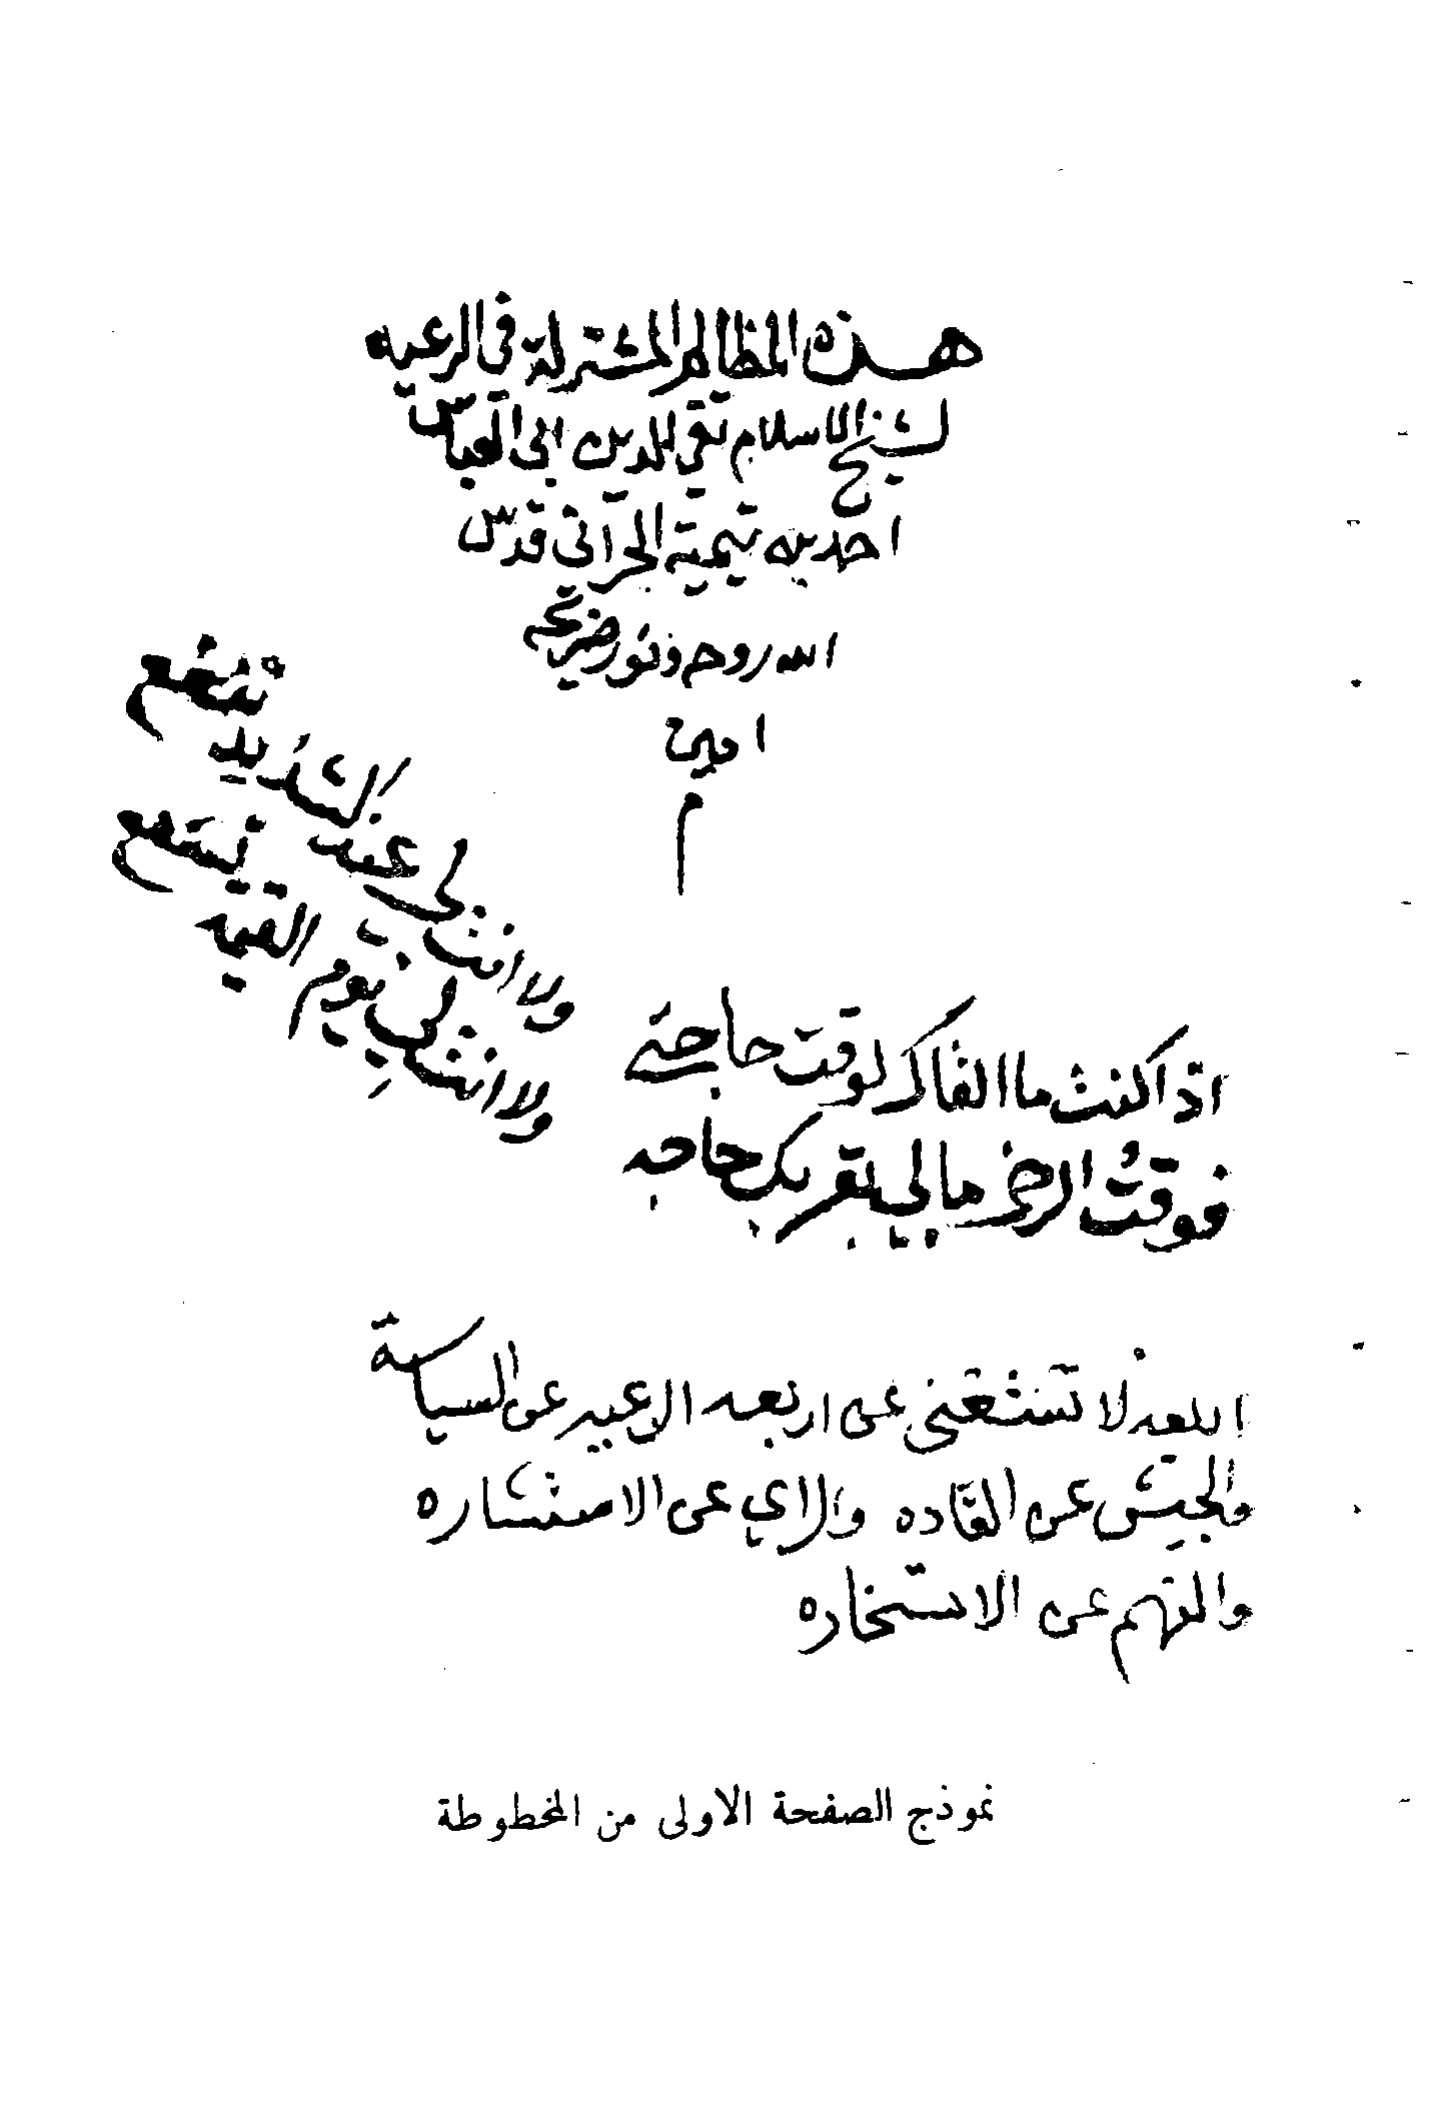 هذه المظالم المشتركة في الرعيه
لشيخ الاسلام تقي الدين ابى العباس
احمد بن تيمية الحرّاني قدس
الله روحه ونور ضريحه
امين
م
اذا كنت ما القاك لوقت حاجتي
ولا انت لي عند الشدايد تنفع
فوقت الرخى مالي بقربك حاجه
ولا انت لي يوم القيمه تشفع
لا تستغنى عن اربعه الرعيه عن السياسة
والجيش عن القاده والراي عن الاستشاره
والمهم عن الاستخاره
نموذج الصفحة الاولى من المخطوطة